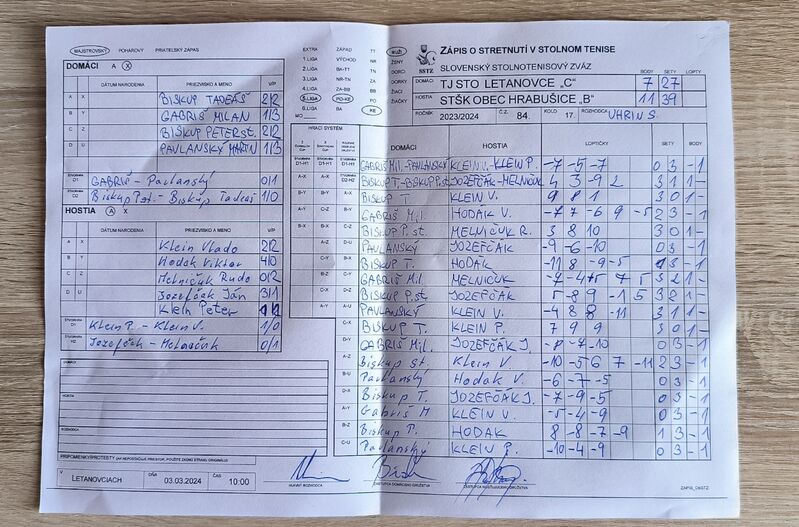 MAJSTROVSKÝ POHÁROVÝ PRIATEĽSKÝ ZÁPAS
DOMÁCI A X
DÁTUM NARODENIA PRIEZVISKO A MENO V/P
A X BISKUP TADEÁŠ 2/2
B Y GABRIŠ MILAN 1/3
C Z BISKUP PETER st. 2/2
D U PAVLANSKÝ MARTIN 1/3
D1 GABRIŠ - Pavlanský 0/1
D2 Biskup P.st. - Biskup Tadeáš 1/0
HOSTIA A X
DÁTUM NARODENIA PRIEZVISKO A MENO V/P
A X Klein Vlado 2/2
B Y Hodak Viktor 4/0
C Z Melničuk Rudo 0/2
D U Jozefčák Ján 3/1
Klein Peter
Klein P. - Klein V. 1/0
Jozefčák - Melničuk 0/1
DOMÁCI
HOSTIA
ROZHODCA
PRIPOMIENKY/PROTESTY
V LETANOVCIACH DŇA 03.03.2024 ČAS 10:00
EXTRA ZÁPAD TT
1.LIGA VÝCHOD NR
2.LIGA BA-TT TN
3.LIGA NR-TN ZA
4.LIGA ZA-BB BB
5.LIGA PO-KE PO
6.LIGA BA KE
MUŽI
ŽENY
DORCI
DORKY
ŽIACI
ŽIAČKY
SSTZ
ZÁPIS O STRETNUTÍ V STOLNOM TENISE
SLOVENSKÝ STOLNOTENISOVÝ ZVÄZ
BODY SETY LOPTY
DOMÁCI TJ STO LETANOVCE „C“ 7 27
HOSTIA STŠK OBEC HRABUŠICE „B“ 11 39
ROČNÍK 2023/2024 Č.Z. 84. KOLO 17 ROZHODCA UHRIN S.
HRACÍ SYSTÉM
DOMÁCI HOSTIA LOPTIČKY SETY BODY
GABRIŠ Mil.-PAVLANSKÝ KLEIN V.-KLEIN P. -7 -5 -7 0 3 - 1
BISKUP T.-BISKUP P.st. JOZEFČÁK-MELNIČUK 4 3 -9 2 3 1 1 -
BISKUP T. KLEIN V. 9 8 1 3 0 1 -
GABRIŠ Mil. HODÁK V. -7 7 -6 9 -5 2 3 - 1
BISKUP P. st. MELNIČUK R. 3 8 10 3 0 1 -
PAVLANSKÝ JOZEFČÁK -9 -6 -10 0 3 - 1
BISKUP T. HODAK -11 8 -9 -5 1 3 - 1
GABRIŠ Mil. MELNIČUK 3 2 1 -
BISKUP P.st. JOZEFČÁK 5 -8 9 -1 5 3 2 1 -
PAVLANSKÝ KLEIN V. -4 8 8 3 1 1 -
BISKUP T. KLEIN P. 7 9 9 3 0 1 -
GABRIŠ Mil. JOZEFČÁK J. -8 -7 -10 0 3 - 1
Biskup st. Klein V. -10 -5 6 7 -11 2 3 - 1
Pavlanský Hodak V. -6 -7 -5 0 3 - 1
Biskup T. JOZEFČÁK J. -7 -9 -5 0 3 - 1
Gabriš M KLEIN V. -5 -4 -9 0 3 - 1
Biskup P. HODAK 8 -8 -7 -9 1 3 - 1
Pavlanský KLEIN P. -10 -4 -9 0 3 - 1
HLAVNÝ ROZHODCA ZÁSTUPCA DOMÁCEHO DRUŽSTVA ZÁSTUPCA HOSŤUJÚCEHO DRUŽSTVA